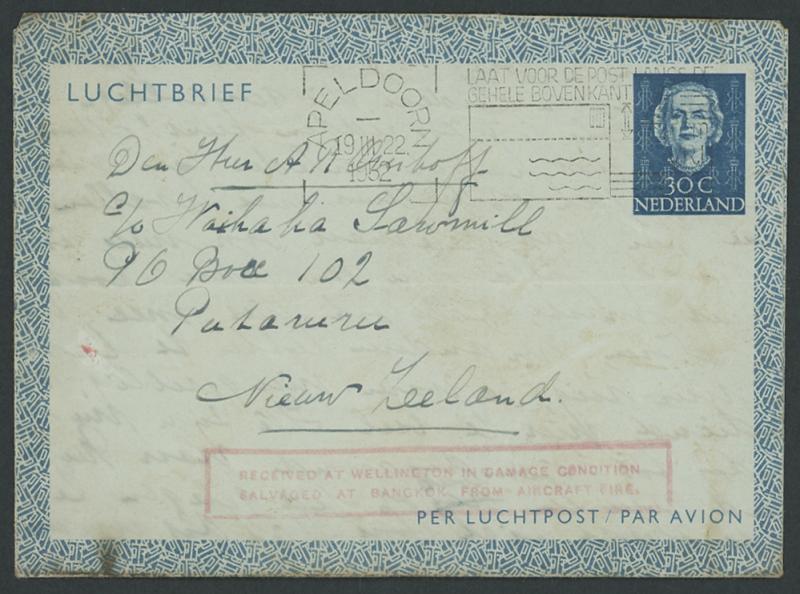 LUCHTBRIEF
APELDOORN
1
19.III.22
1952
LAAT VOOR DE POST LANGS DE
GEHELE BOVENKANT
30 C
NEDERLAND
Den Heer A
c/o Waihaha Sawmill
PO Box 102
Putaruru
Nieuw Zeeland.
RECEIVED AT WELLINGTON IN DAMAGE CONDITION
SALVAGED AT BANGKOK FROM AIRCRAFT FIRE.
PER LUCHTPOST / PAR AVION